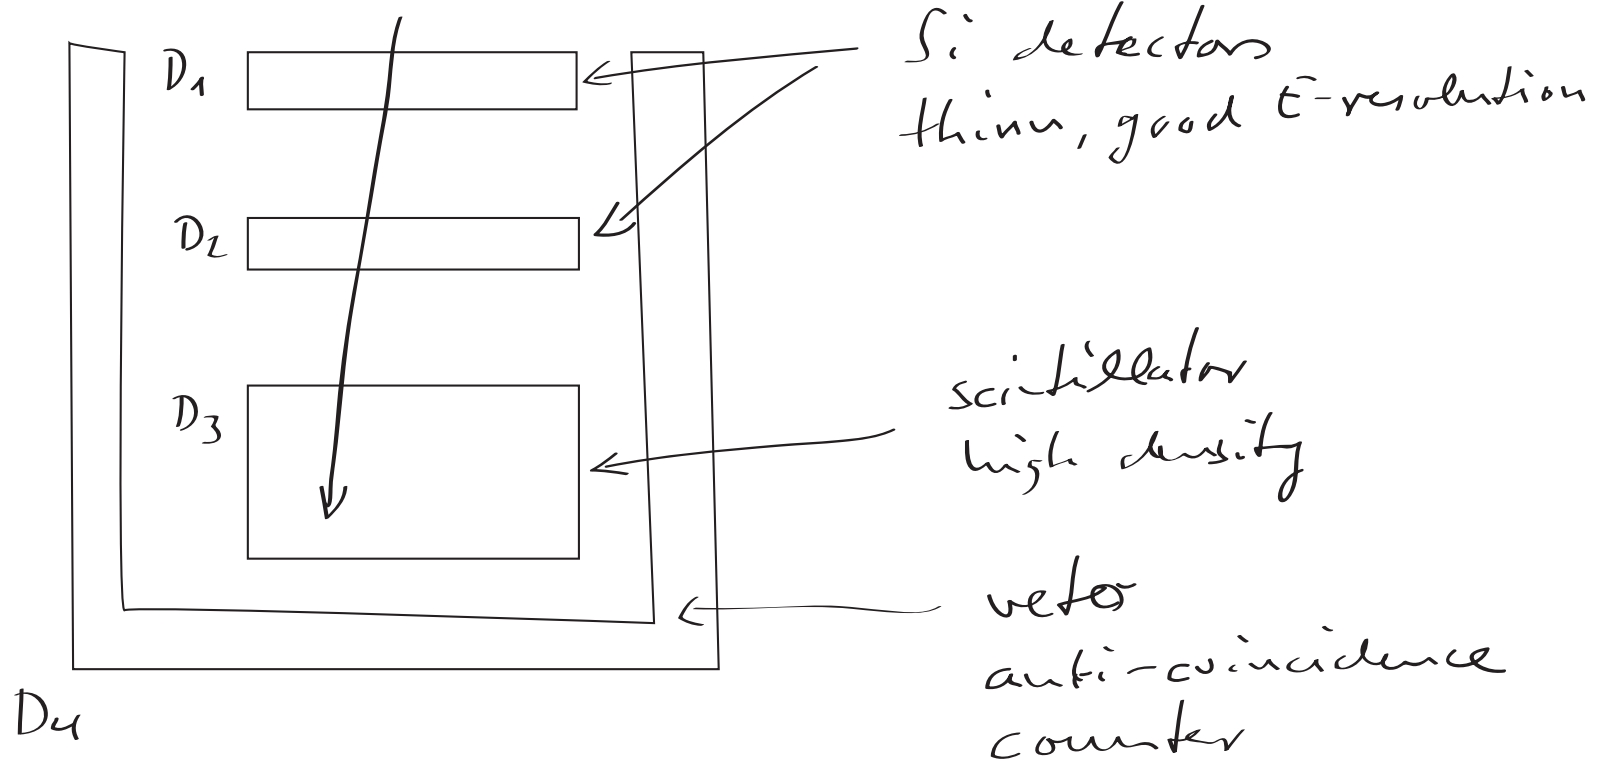 D1
Si detectors
thinn, good E-resolution
D2
D3
scintillator
high density
veto
anti-coincidence
counter
D4